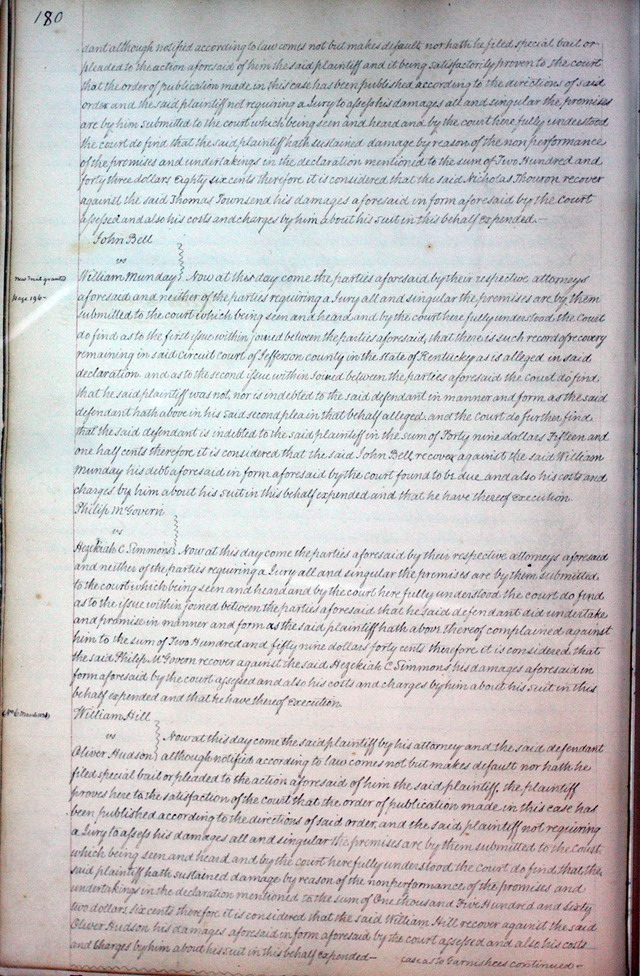 180
dant although notified according to law comes not but makes default, nor hath he filed special bail or
pleaded to the action aforesaid of him the said plaintiff and it being satisfactorily proven to the court
that the order of publication made in this case has been published according to the directions of said
order and the said plaintiff not requiring a Jury to assess his damages all and singular the premises
are by him submitted to the court which being seen and heard and by the court here fully understood
the court do find that the said plaintiff hath sustained damage by reason of the non performance
of the promises and undertakings in the declaration mentioned to the sum of Two Hundred and
forty three dollars Eighty six cents therefore it is considered that the said Nicholas Thouron recover
against the said Thomas Townsend his damages aforesaid in form aforesaid by the court
assessed and also his costs and charges by him about his suit in this behalf expended.—
John Bell
vs
New Trial granted
page 196
William Munday Now at this day come the parties aforesaid by their respective attorneys
aforesaid and neither of the parties requiring a Jury all and singular the premises are by them
submitted to the court which being seen and heard and by the court here fully understood the Court
do find as to the first issue within joined between the parties aforesaid, that there is such record of recovery
remaining in said Circuit court of Jefferson county in the state of Kentucky as is alleged in said
declaration and as to the second issue within Joined between the parties aforesaid the Court do find
that he said plaintiff was not, nor is indebted to the said defendant in manner and form as the said
defendant hath above in his said second plea in that behalf alleged, and the court do further find
that the said defendant is indebted to the said plaintiff in the sum of Forty nine dollars Fifteen and
one half cents therefore it is considered that the said John Bell recover against the said William
Munday his debt aforesaid in form aforesaid by the court found to be due and also his costs and
charges by him about his suit in this behalf expended and that he have thereof execution.
Philip McGovern
vs
Hezekiah C Simmons Now at this day come the parties aforesaid by their respective attorneys aforesaid
and neither of the parties requiring a Jury all and singular the premises are by them submitted
to the court which being seen and heard and by the court here fully understood the court do find
as to the issue within joined between the parties aforesaid that he said defendant did undertake
and promise in manner and form as the said plaintiff hath above thereof complained against
him to the sum of Two Hundred and fifty nine dollars forty cents therefore it is considered that
the said Philip McGovern recover against the said Hezekiah C Simmons his damages aforesaid in
form aforesaid by the court assessed and also his costs and charges by him about his suit in this
behalf expended and that he have thereof execution.
William Hill
vs
Now at this day come the said plaintiff by his attorney and the said defendant
Oliver Hudson although notified according to law comes not but makes default nor hath he
filed special bail or pleaded to the action aforesaid of him the said plaintiff, the plaintiff
proves here to the satisfaction of the court that the order of publication made in this case has
been published according to the directions of said order, and the said plaintiff not requiring
a Jury to assess his damages all and singular the premises are by them submitted to the Court
which being seen and heard and by the court here fully understood the court do find that the
said plaintiff hath sustained damage by reason of the nonperformance of the promises and
undertakings in the declaration mentioned to the sum of One thousand Five Hundred and Sixty
two dollars six cents therefore it is considered that the said William Hill recover against the said
Oliver Hudson his damages aforesaid in form aforesaid by the court assessed and also his costs
and Charges by him about his suit in this behalf expended—
case as to Garnishees continued—